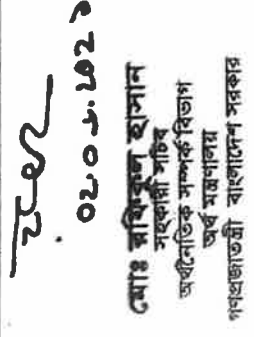 মোঃ রফিকুল হাসান
সহকারী সচিব
অর্থনৈতিক সম্পর্ক বিভাগ
অর্থ মন্ত্রণালয়
গণপ্রজাতন্ত্রী বাংলাদেশ সরকার